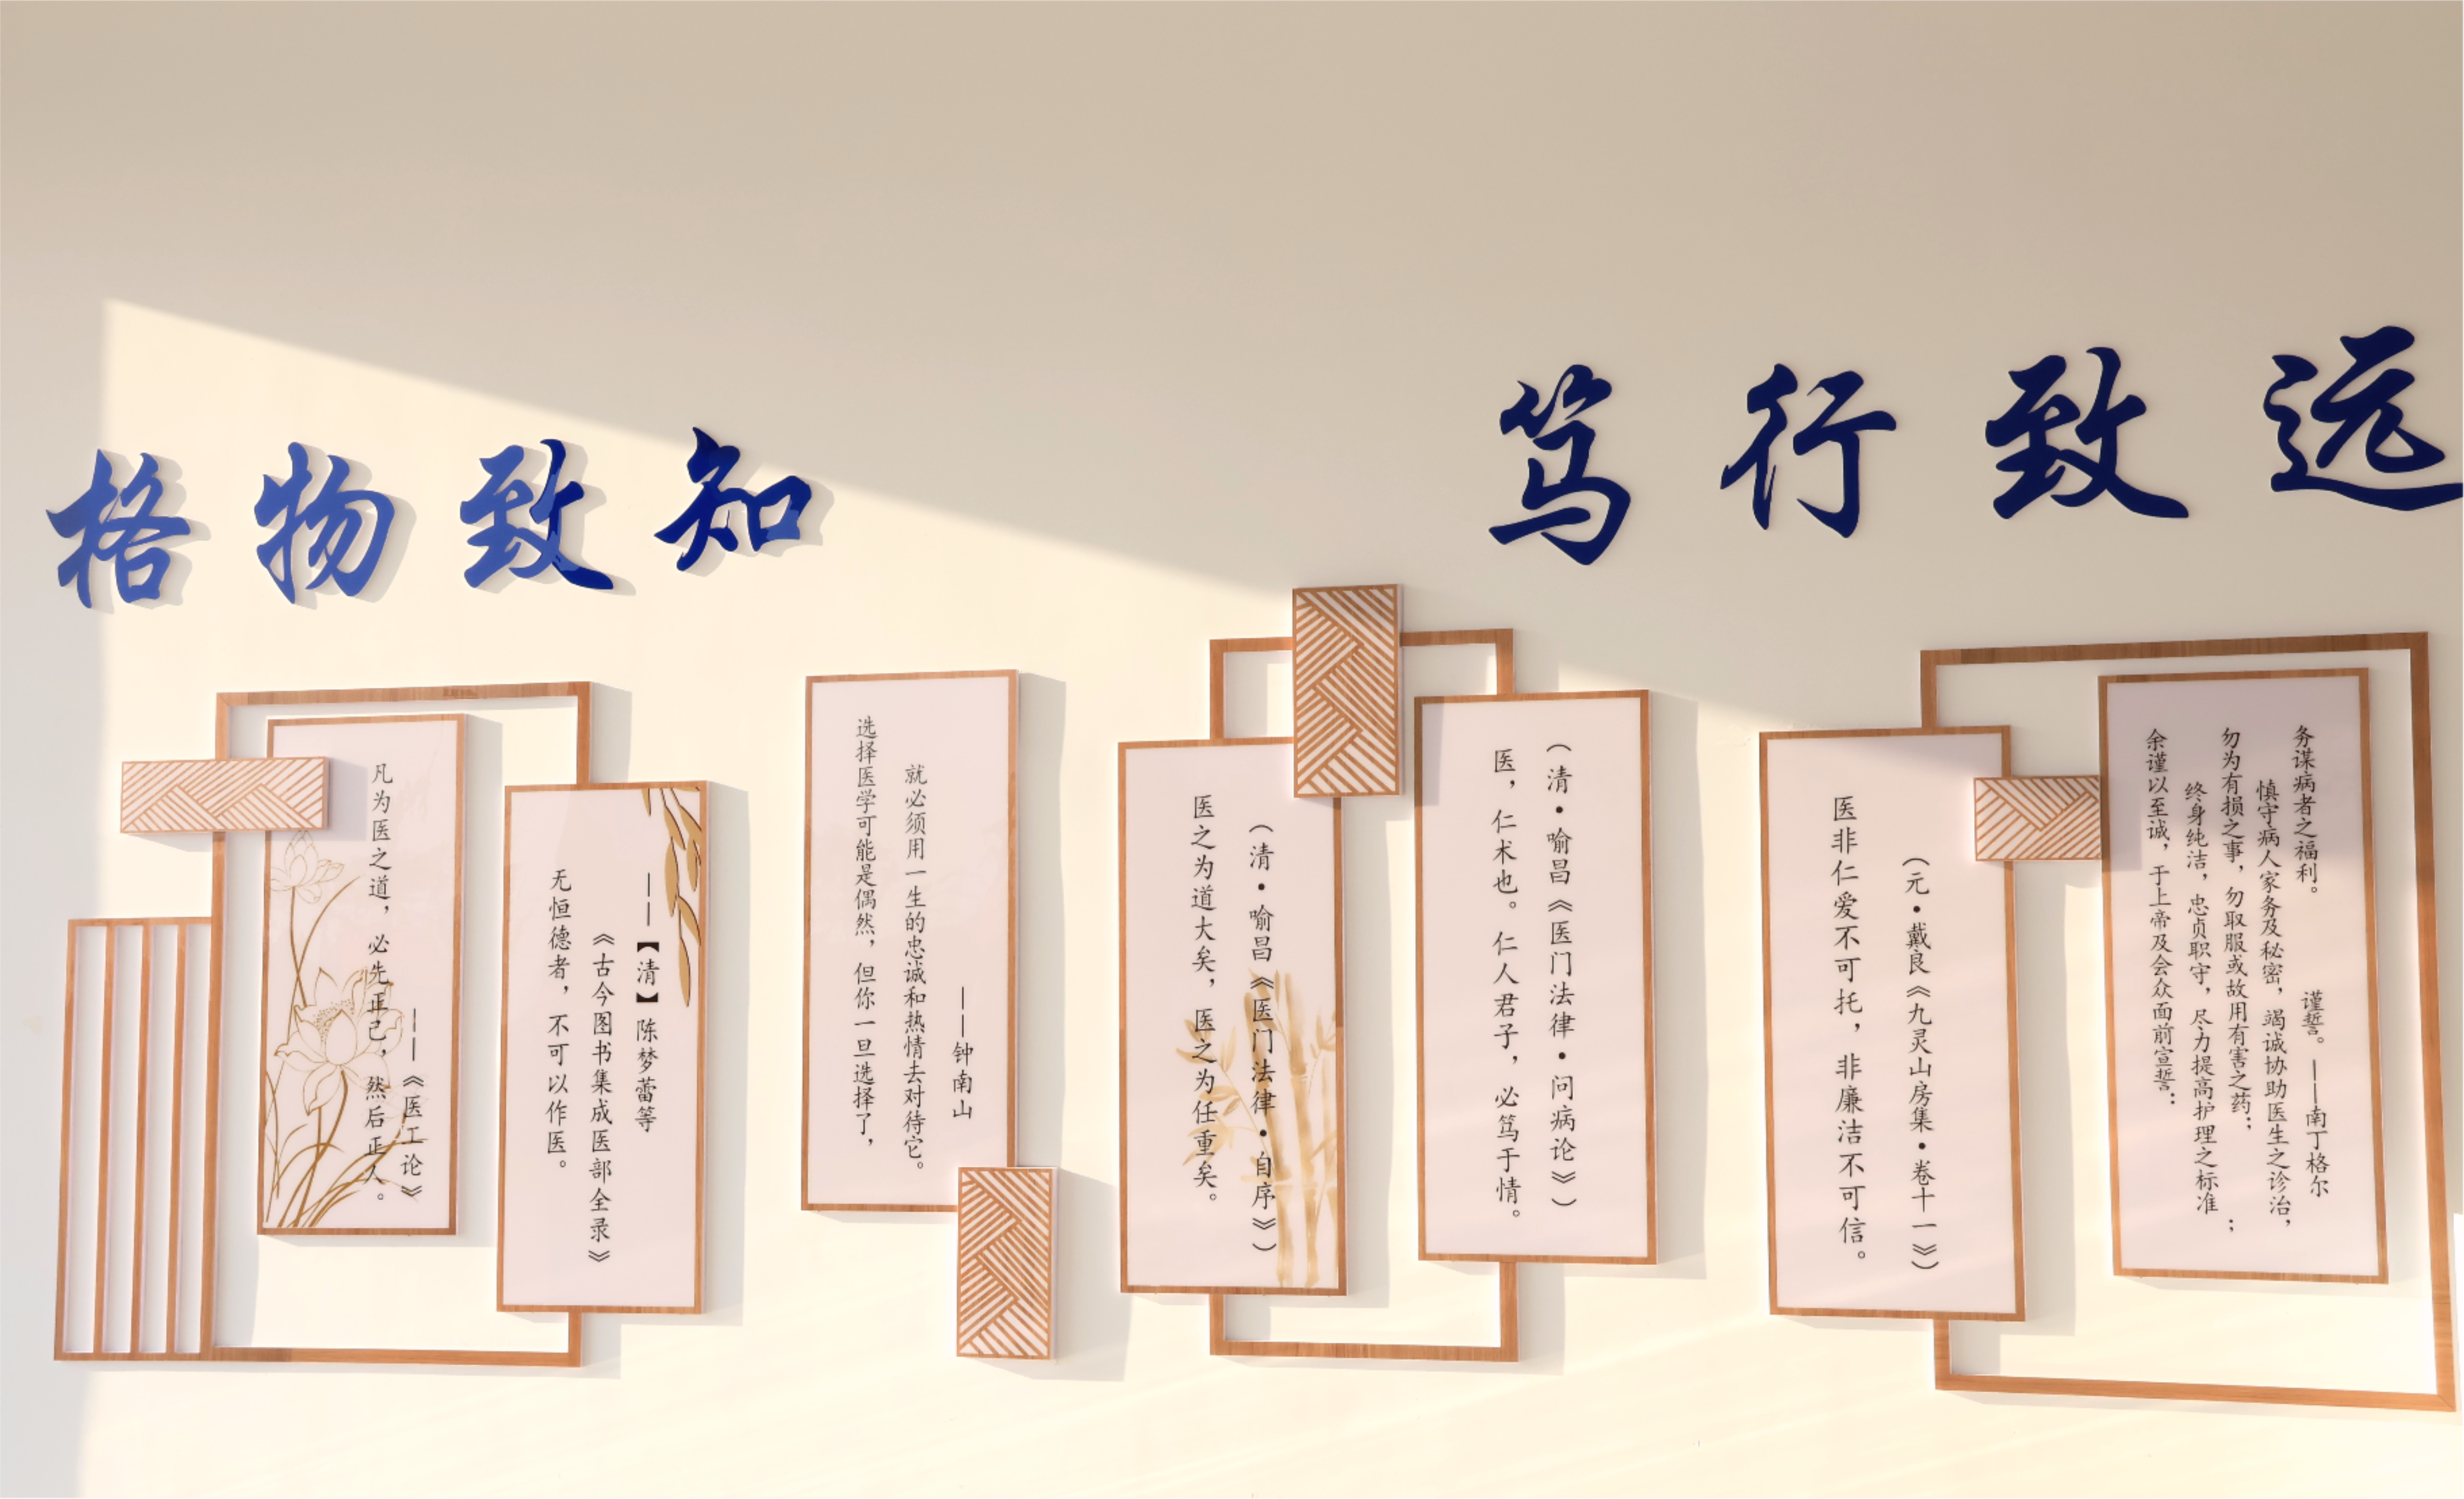 格物致知
笃行致远
凡为医之道，必先正己，然后正人。
——《医工论》
无恒德者，不可以作医。
《古今图书集成医部全录》
——【清】陈梦蕾等
选择医学可能是偶然，但你一旦选择了，
就必须用一生的忠诚和热情去对待它。
——钟南山
医之为道大矣，医之为任重矣。
（清·喻昌《医门法律·自序》）
医，仁术也。仁人君子，必笃于情。
（清·喻昌《医门法律·问病论》）
医非仁爱不可托，非廉洁不可信。
（元·戴良《九灵山房集·卷十一》）
余谨以至诚，于上帝及会众面前宣誓：
终身纯洁，忠贞职守，尽力提高护理之标准；
勿为有损之事，勿取服或故用有害之药；
慎守病人家务及秘密，竭诚协助医生之诊治，
务谋病者之福利。 谨誓。——南丁格尔